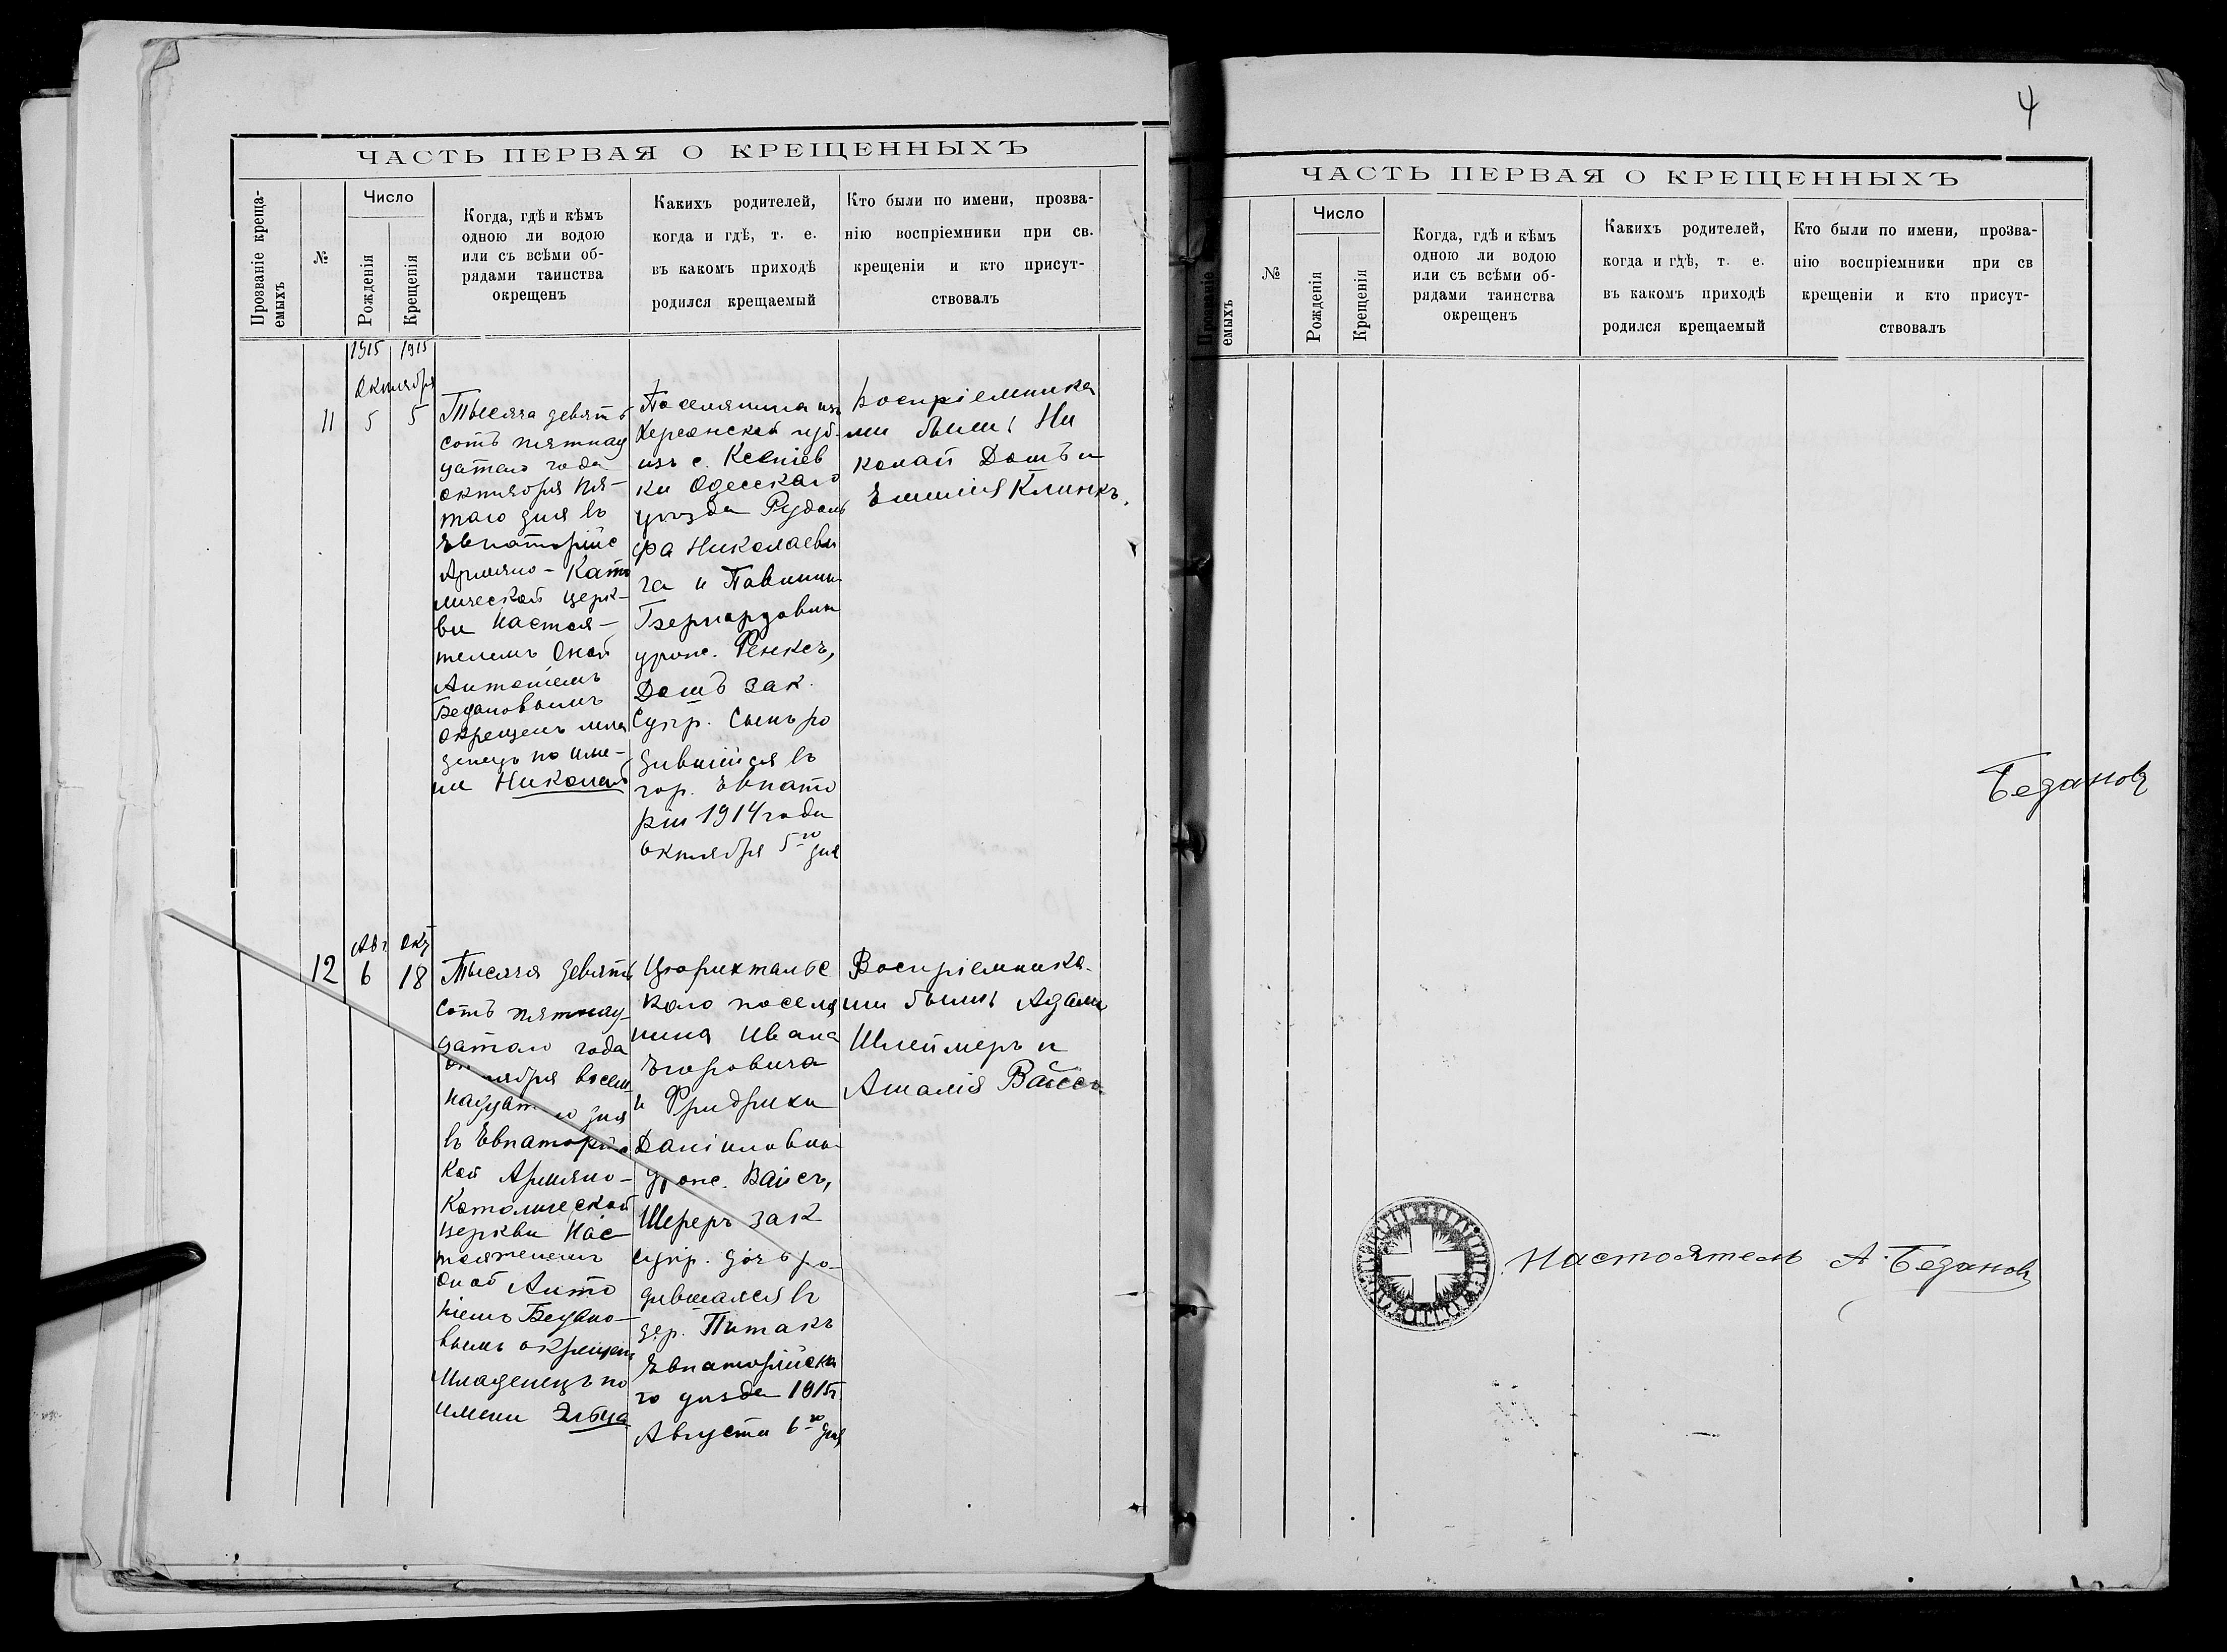 ЧАСТЬ ПЕРВАЯ О КРЕЩЕННЫХЪ
Прозваніе креща-
емыхъ
№
Число
Рожденія
Крещенія
Когда, гдѣ и кѣмъ
одною ли водою
или съ всѣми об-
рядами таинства
окрещенъ
Какихъ родителей,
когда и гдѣ, т. е.
въ какомъ приходѣ
родился крещаемый
Кто были по имени, прозва-
нію воспріемники при св.
крещеніи и кто присут-
ствовалъ
1915 1915
Октября
11 5 5
Тысяча девять
сотъ пятнад
цатаго года
октября пя-
таго дня въ
Евпаторійс
Армяно-Като
лической церк-
ви Настоя-
телемъ оной
Антоніемъ
Бедановымъ
окрещенъ мла
денецъ по име-
ни Николай
Поселянина изъ
Херсонской губ.
изъ с.
ки Одесскаго
уѣзда Рудоль
фа Николаеви
ча и Павлины
Бернардовны
урож. Фенксъ,
Домъ зак.
Супр. Сынъ ро
дившійся въ
гор. Евпато
ріи 1914 года
октября 5го дня
Воспріемника
ми были: Ни
колай Домъ и
Емилія Клинкъ.
Авг Окт
12 6 18
Тысяча девять
сотъ пятнад-
цатаго года
октября восем
надцатаго дня
въ Евпаторійс
кой Армяно-
Католической
церкви Нас-
тоятелемъ
оной Анто
ніемъ Бедано-
вымъ окрещенъ
младенецъ по
имени Эльза
Цюрихтальс
каго поселя
нина Ивана
Егоровича
и Фридрики
Даніиловны
урож. Вайсъ,
Шереръ зак
супр. дочь ро-
дившаяся въ
дер. Питакъ
Евпаторійска
го уѣзда 1915
Августа 6го дня
Воспріемника-
ми были: Адамъ
Шлеймеръ и
Амалія Вайссъ
4
ЧАСТЬ ПЕРВАЯ О КРЕЩЕННЫХЪ
Прозваніе
емыхъ
№
Число
Рожденія
Крещенія
Когда, гдѣ и кѣмъ
одною ли водою
или съ всѣми об-
рядами таинства
окрещенъ
Какихъ родителей,
когда и гдѣ, т. е.
въ какомъ приходѣ
родился крещаемый
Кто были по имени, прозва-
нію воспріемники при св
крещеніи и кто присут-
ствовалъ
Бедановъ
Настоятель А. Бедановъ